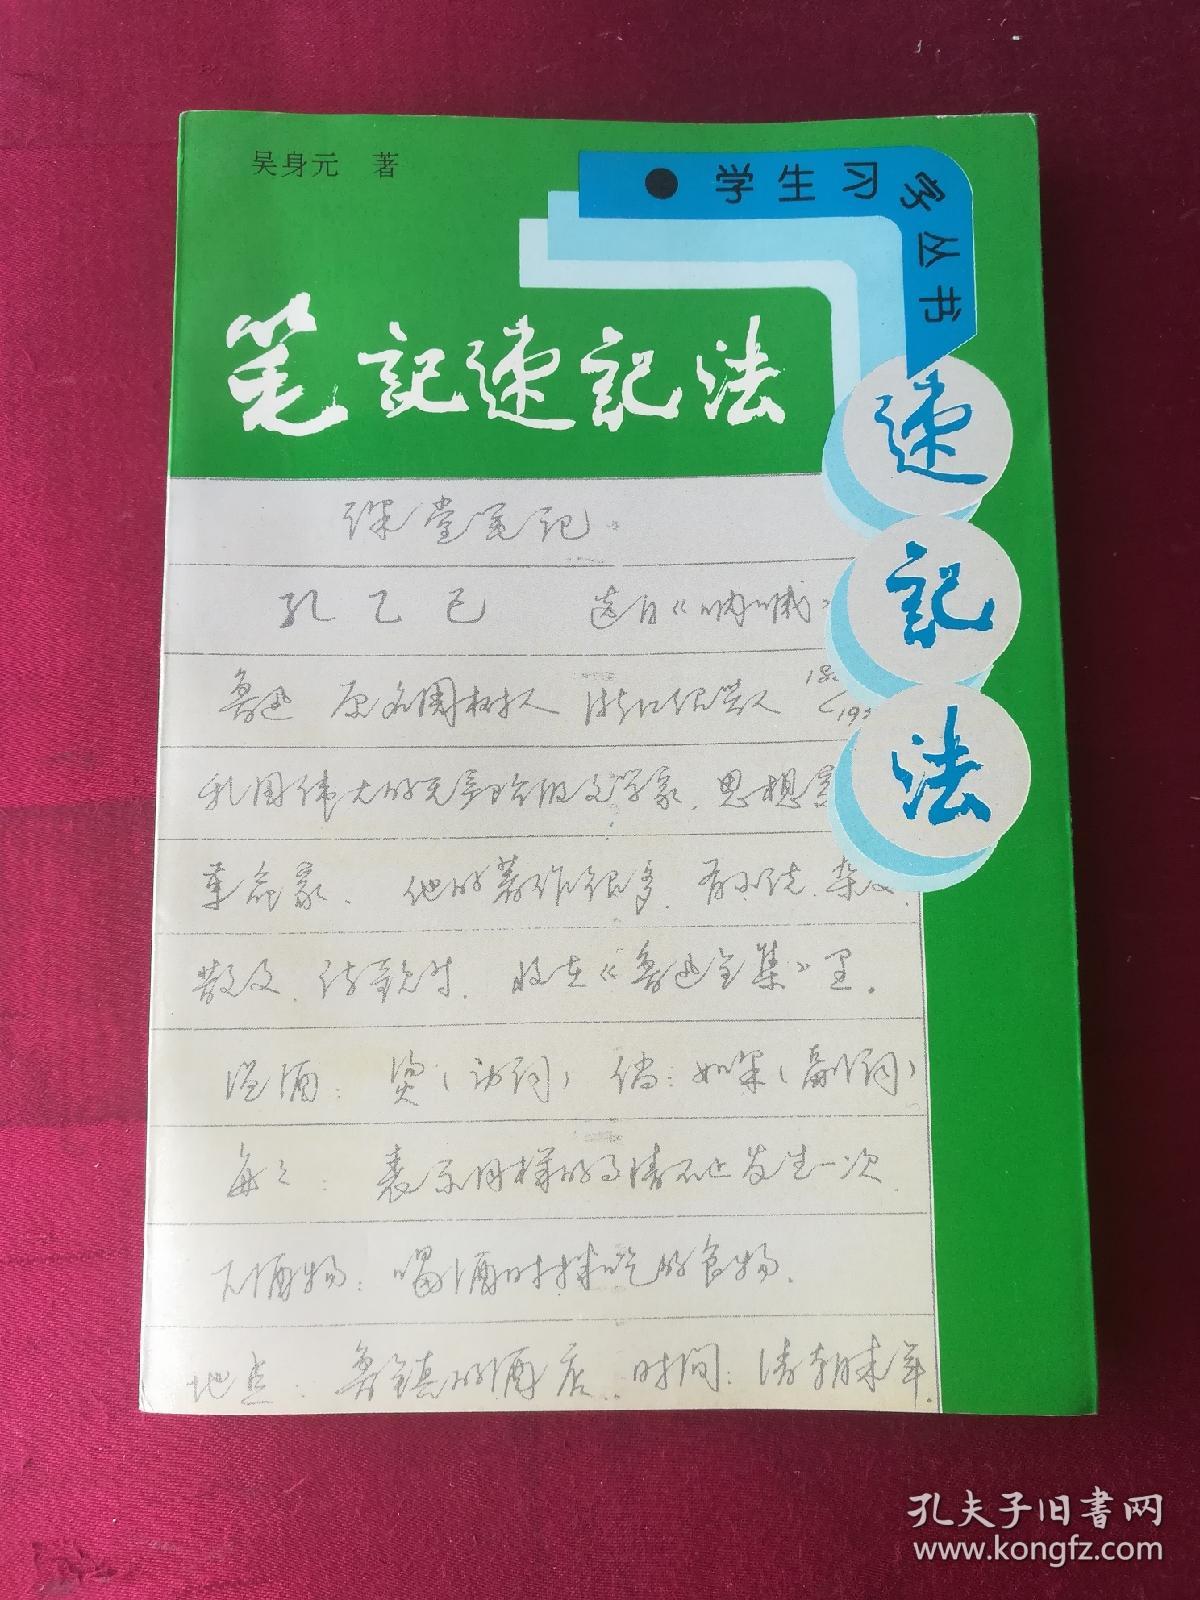 吴身元 著
●学生习字丛书
笔記速記法
速記法
课堂笔记
孔乙己 选自《呐喊》
鲁迅 原名周树人 浙江绍兴人
我国伟大的无产阶级文学家、思想家
革命家、他的著作很多、有小说、杂文、
散文、诗歌等、收在《鲁迅全集》里。
温酒：烫（动词） 倘：如果（副词）
每每：表示同样的事情不止发生一次、
下酒物：喝酒时揀吃的食物、
地点：鲁镇的酒店、时间：清朝末年、
孔夫子旧书网
www.kongfz.com